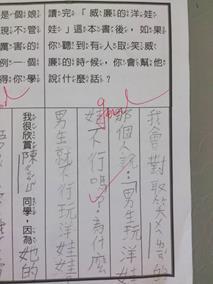 讀完「威廉的洋娃
娃」這本書後，如果
你聽到有人取笑威
廉的時候，你會幫他
說什麼話？
我會對取笑
那個人說：「男生玩洋
娃不行嗎？為什麼
男生就不行玩洋娃娃
是個娘
現不管
厲害的
例一個
得你學
我很欣賞陳 同學，因為她的